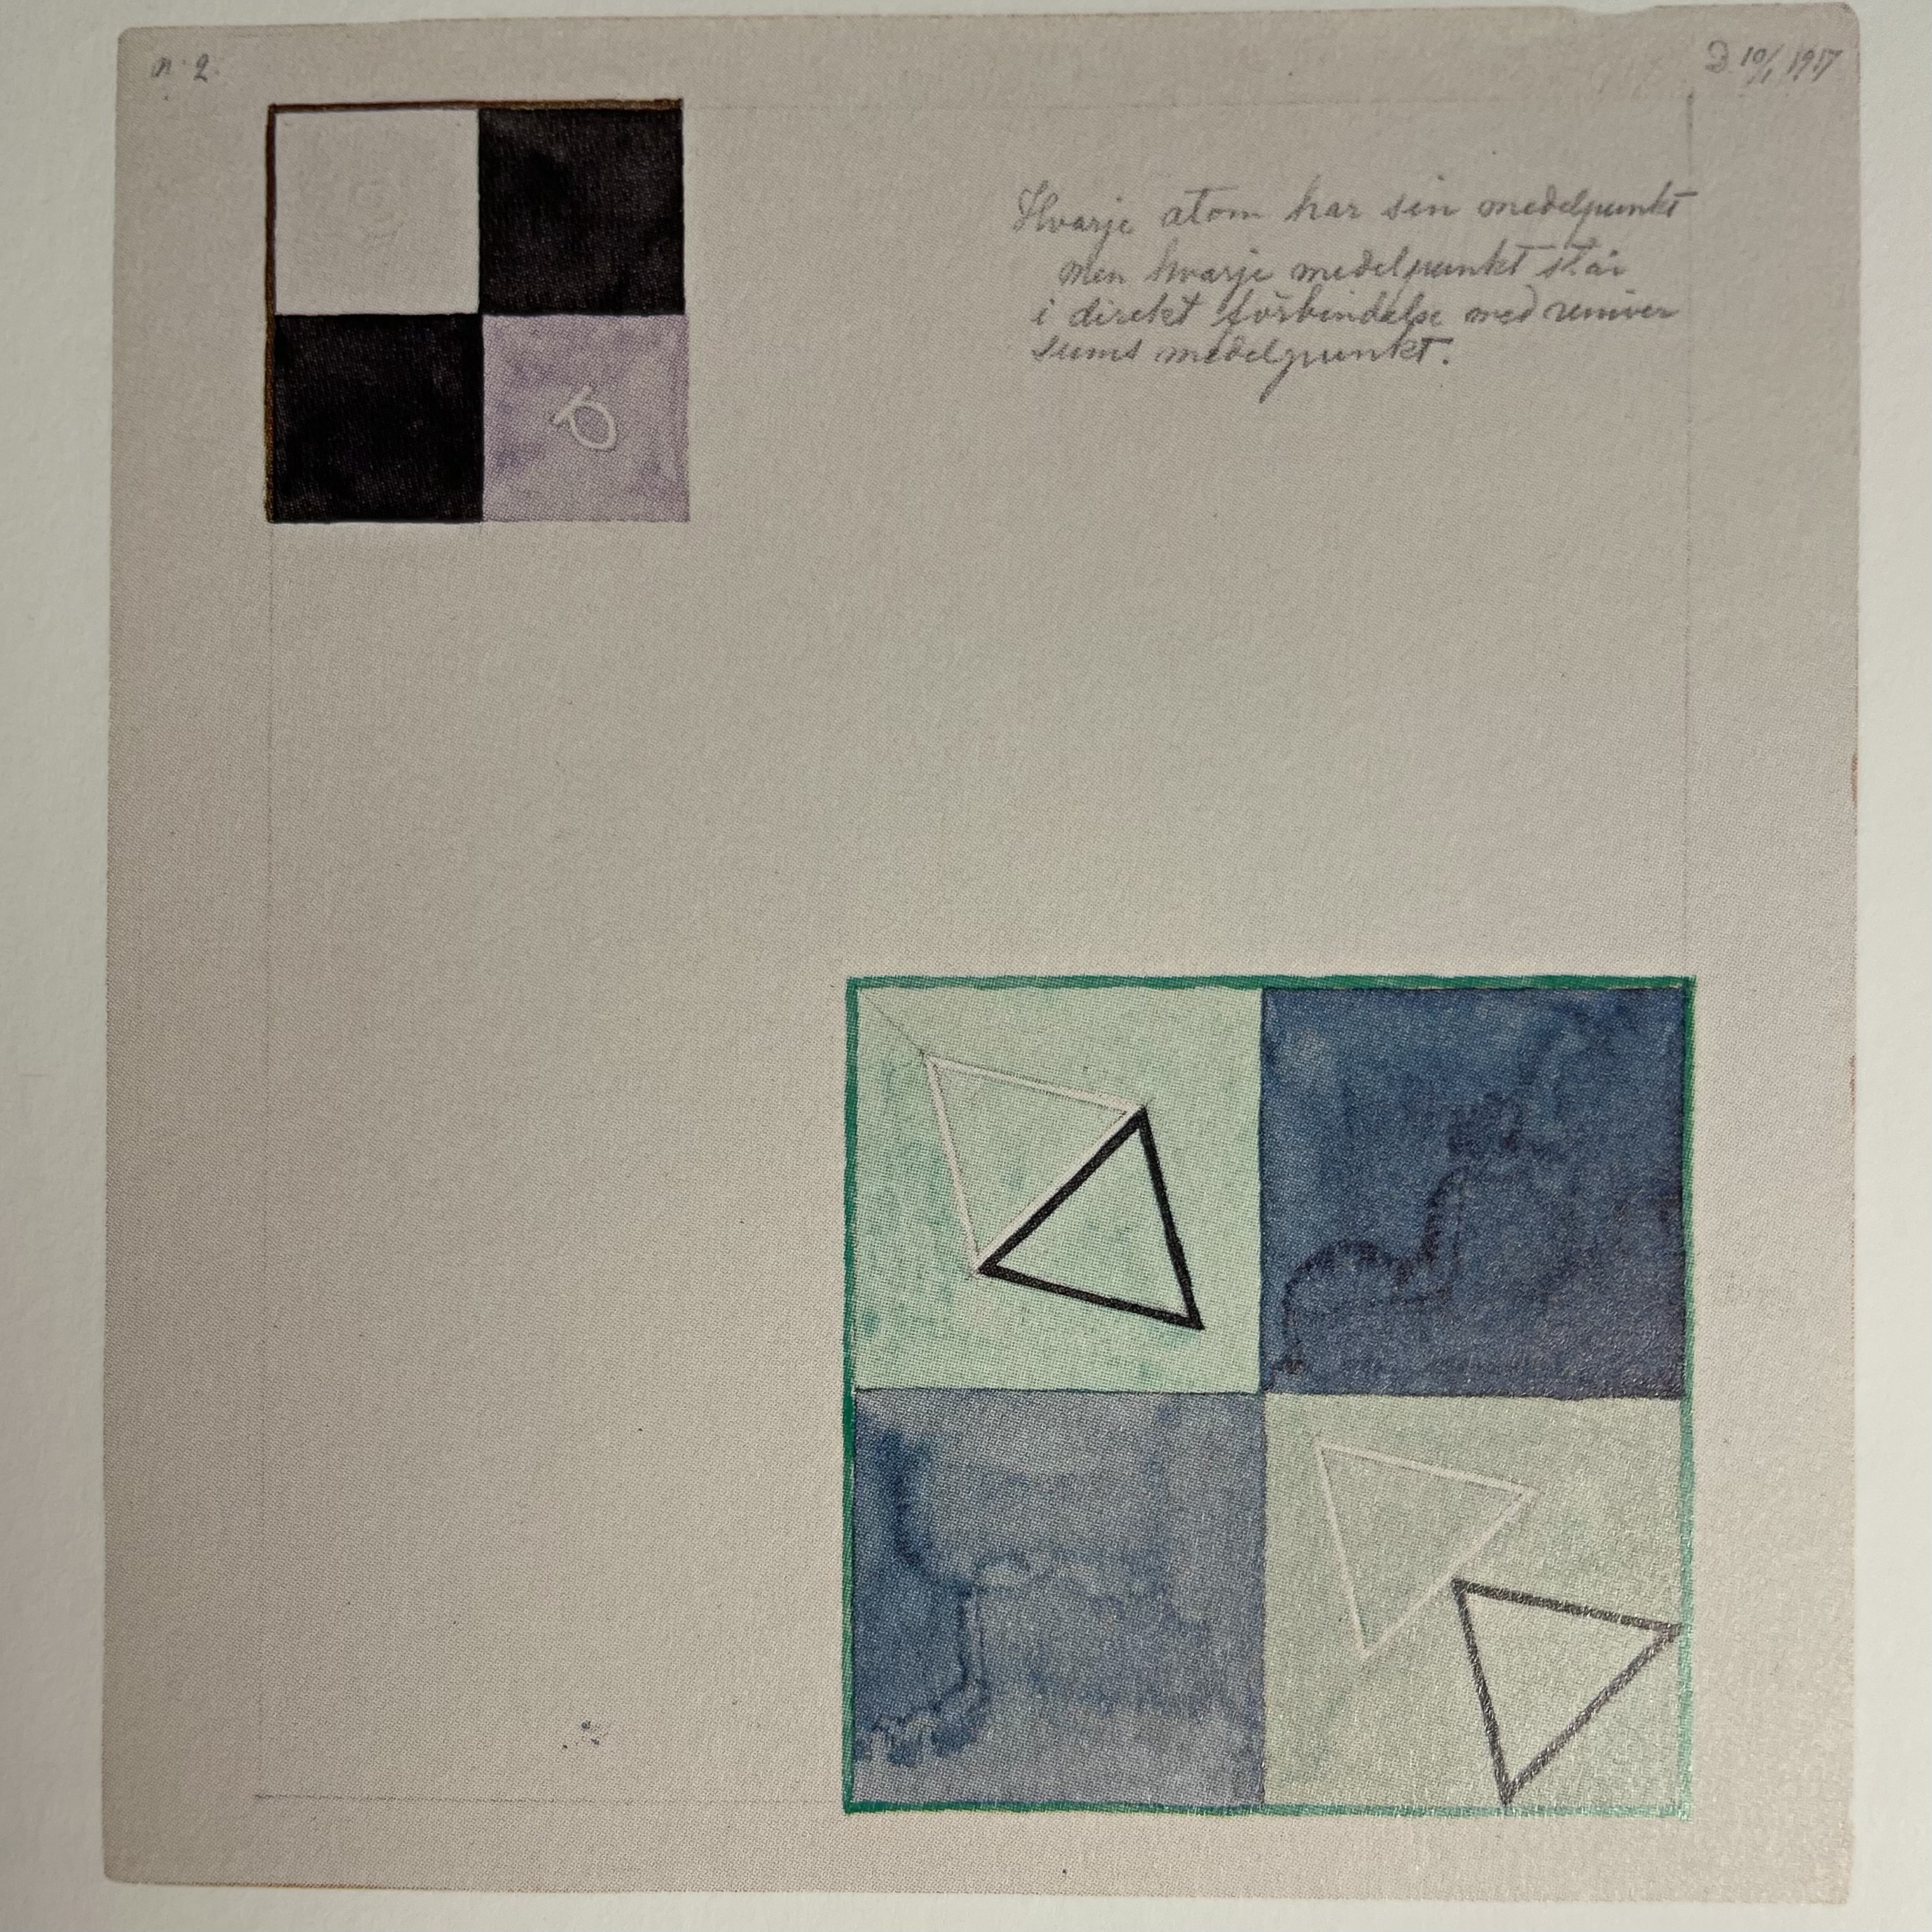 n. 2.
D 10/1 1917
Hvarje atom har sin medelpunkt
men hvarje medelpunkt står
i direkt förbindelse med univer
sums medelpunkt.